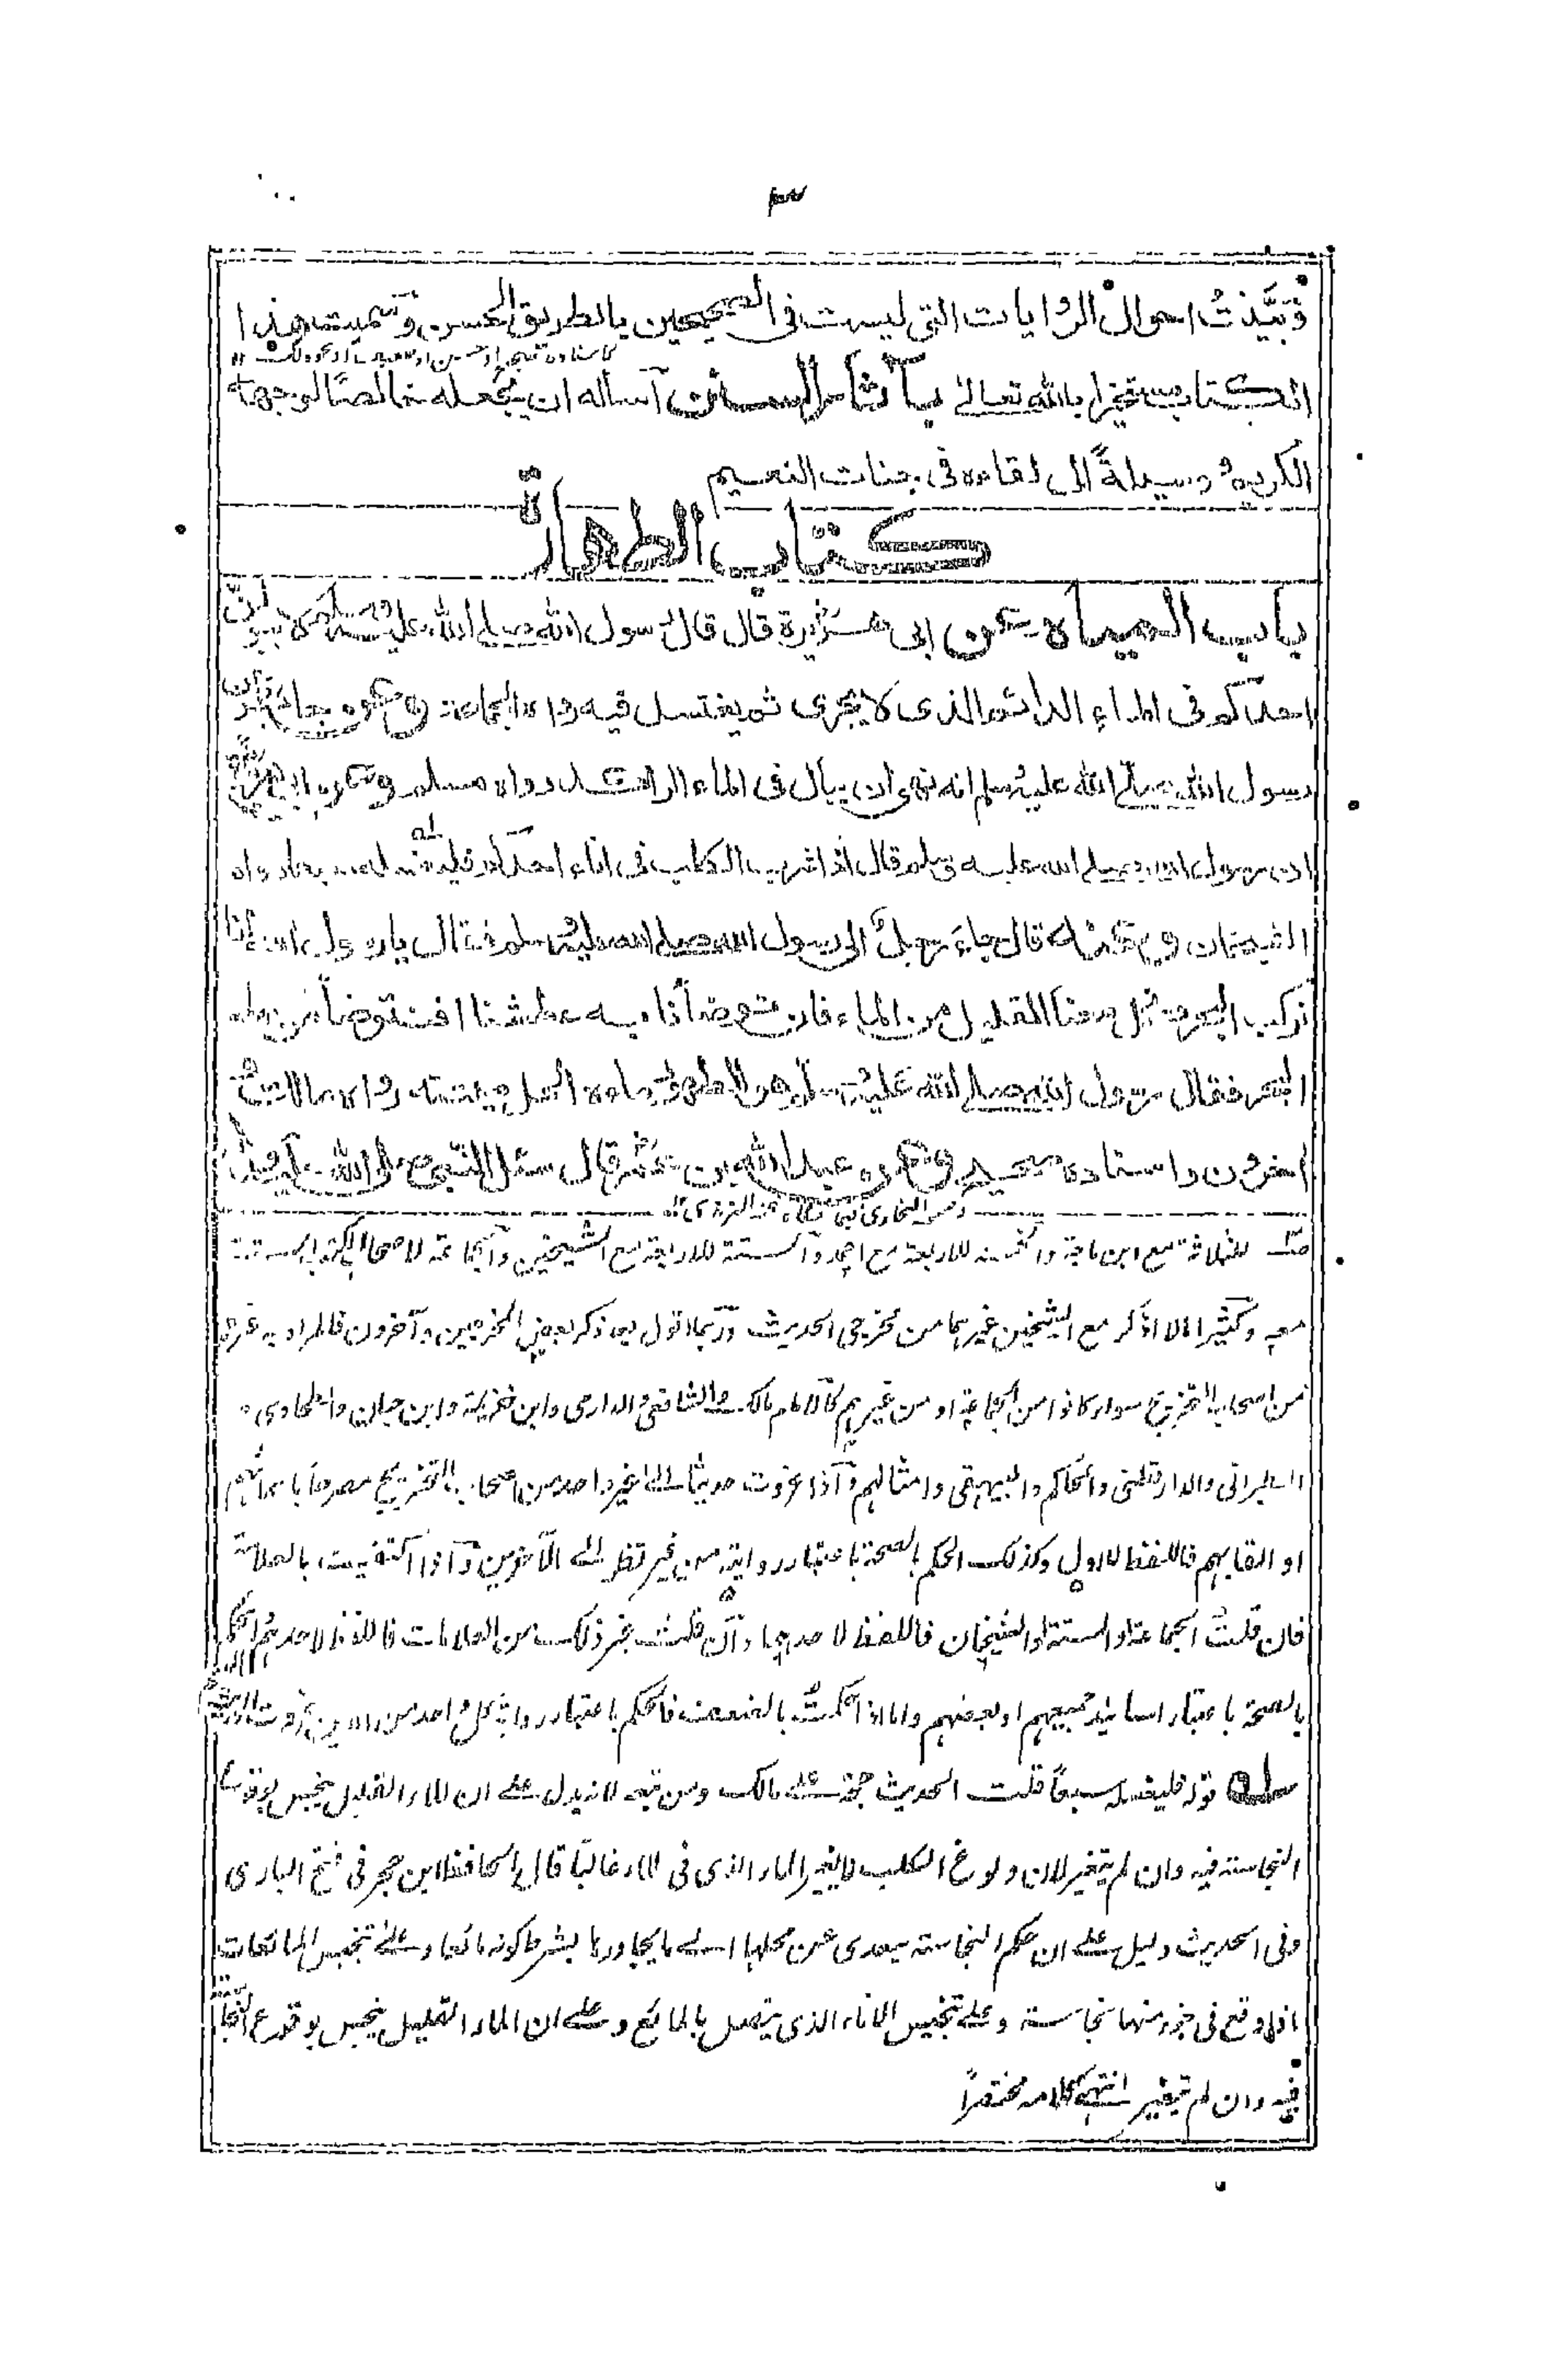 ٣
وبيّنتُ احوال الروايات التى ليست فى الصحيحين بالطريق الحسن وسميت هذا
الكتاب مستخيرا بالله تعالىٰ بآثار السنن أسأله ان يجعله خالصًا لوجهه
الكريم ووسيلةً الى لقاءه فى جنات النعيم
كتاب الطهارة
باب المياه عن ابى هريرة قال قال رسول الله صلى الله عليه وسلم لا يبولنّ
احدكم فى الماء الدائم الذى لا يجرى ثم يغتسل فيه رواه الجماعة وعن جابر عن
رسول الله صلى الله عليه وسلم انه نهى ان يبال فى الماء الراكد رواه مسلم وعن ابى هريرة
ان رسول الله صلى الله عليه وسلم قال اذا شرب الكلب فى اناء احدكم فليغسله سبعا رواه
الشيخان وعنه قال جاء رجلٌ الى رسول الله صلى الله عليه وسلم فقال يا رسول الله انا
نركب البحر ونحمل معنا القليل من الماء فان توضأنا به عطشنا افنتوضأ من ماء
البحر فقال رسول الله صلى الله عليه وسلم هو الطهور ماءه الحل ميتته رواه مالك و
آخرون واسناده صحيح وعن عبد الله بن عمر قال سئل النبى صلى الله عليه وسلم
للثلاثة مع ابن ماجة والخمسة للاربعة مع احمد والستة للاربعة مع الشيخين والجماعة لاصحاب الكتب الستة
معه وكثيرا ما لا اذكر مع الشيخين غيرهما من مخرجى الحديث وربما اقول بعد ذكر بعض المخرجين وآخرون فالمراد به غيره
من اصحاب التخريج سواء كانوا من الجماعة او من غيرهم كالامام مالك والشافعى والدارمى وابن خزيمة وابن حبان والطحاوى و
الطبرانى والدارقطنى والحاكم والبيهقى وامثالهم واذا عزوت حديثا الى غير واحد من اصحاب التخريج مصرحا باسمائهم
او القابهم فاللفظ للاول وكذلك الحكم بالصحة باعتبار روايته من غير نظر الى الآخرين واذا اكتفيت بالعلامة
فان قلت الجماعة او الستة او الشيخان فاللفظ لاحدهما وان قلت بغير ذلك من العلامات فاللفظ لاحدهم
بالصحة باعتبار اسانيد جميعهم او بعضهم واما اذا حكمت بالضعف فالحكم باعتبار رواية كل واحد من
سله قوله فليغسله سبعًا قلت الحديث حجة على مالك ومن تبعه لانه يدل على ان الماء القليل ينجس بوقوع
النجاسة فيه وان لم يتغير لان ولوغ الكلب لا يغير الماء الذى فى الاناء غالبًا قال الحافظ ابن حجر فى فتح البارى
وفى الحديث دليل على ان حكم النجاسة يتعدى عن محلها الى ما يجاورها بشرط كونه مائعا وعلى تنجيس المائعات
اذا وقع فى جزء منها نجاسة وعلى تنجيس الاناء الذى يتصل بالمائع وعلى ان الماء القليل ينجس بوقوع النجاسة
فيه وان لم يتغير انتهى كلامه مختصرًا